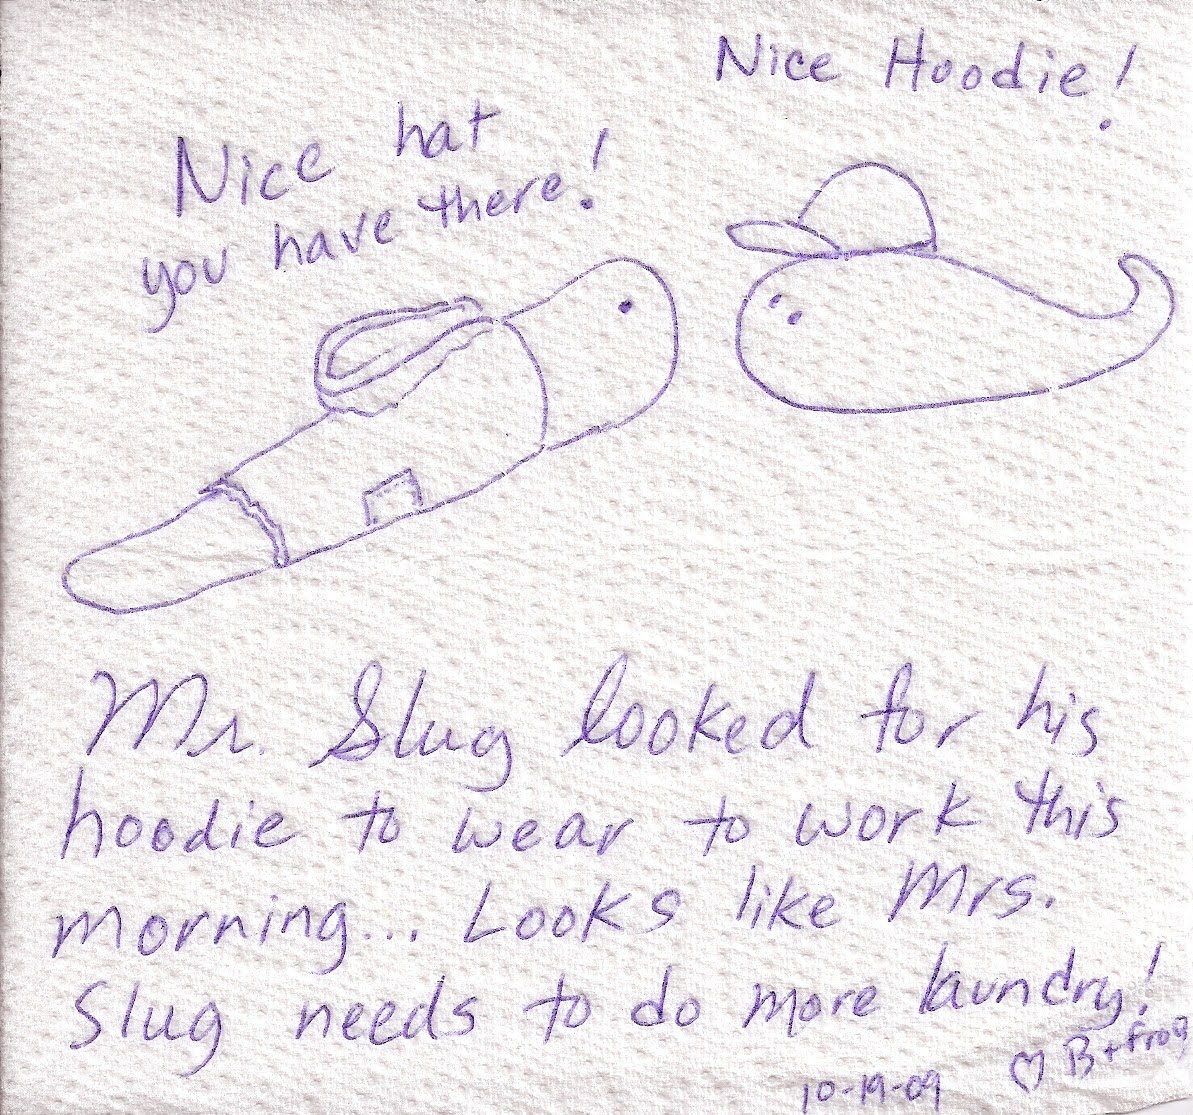 Nice Hoodie!
Nice hat
you have there!
Mr. Slug looked for his
hoodie to wear to work this
morning... Looks like Mrs.
Slug needs to do more laundry!
♡ B + Frog
10-19-09